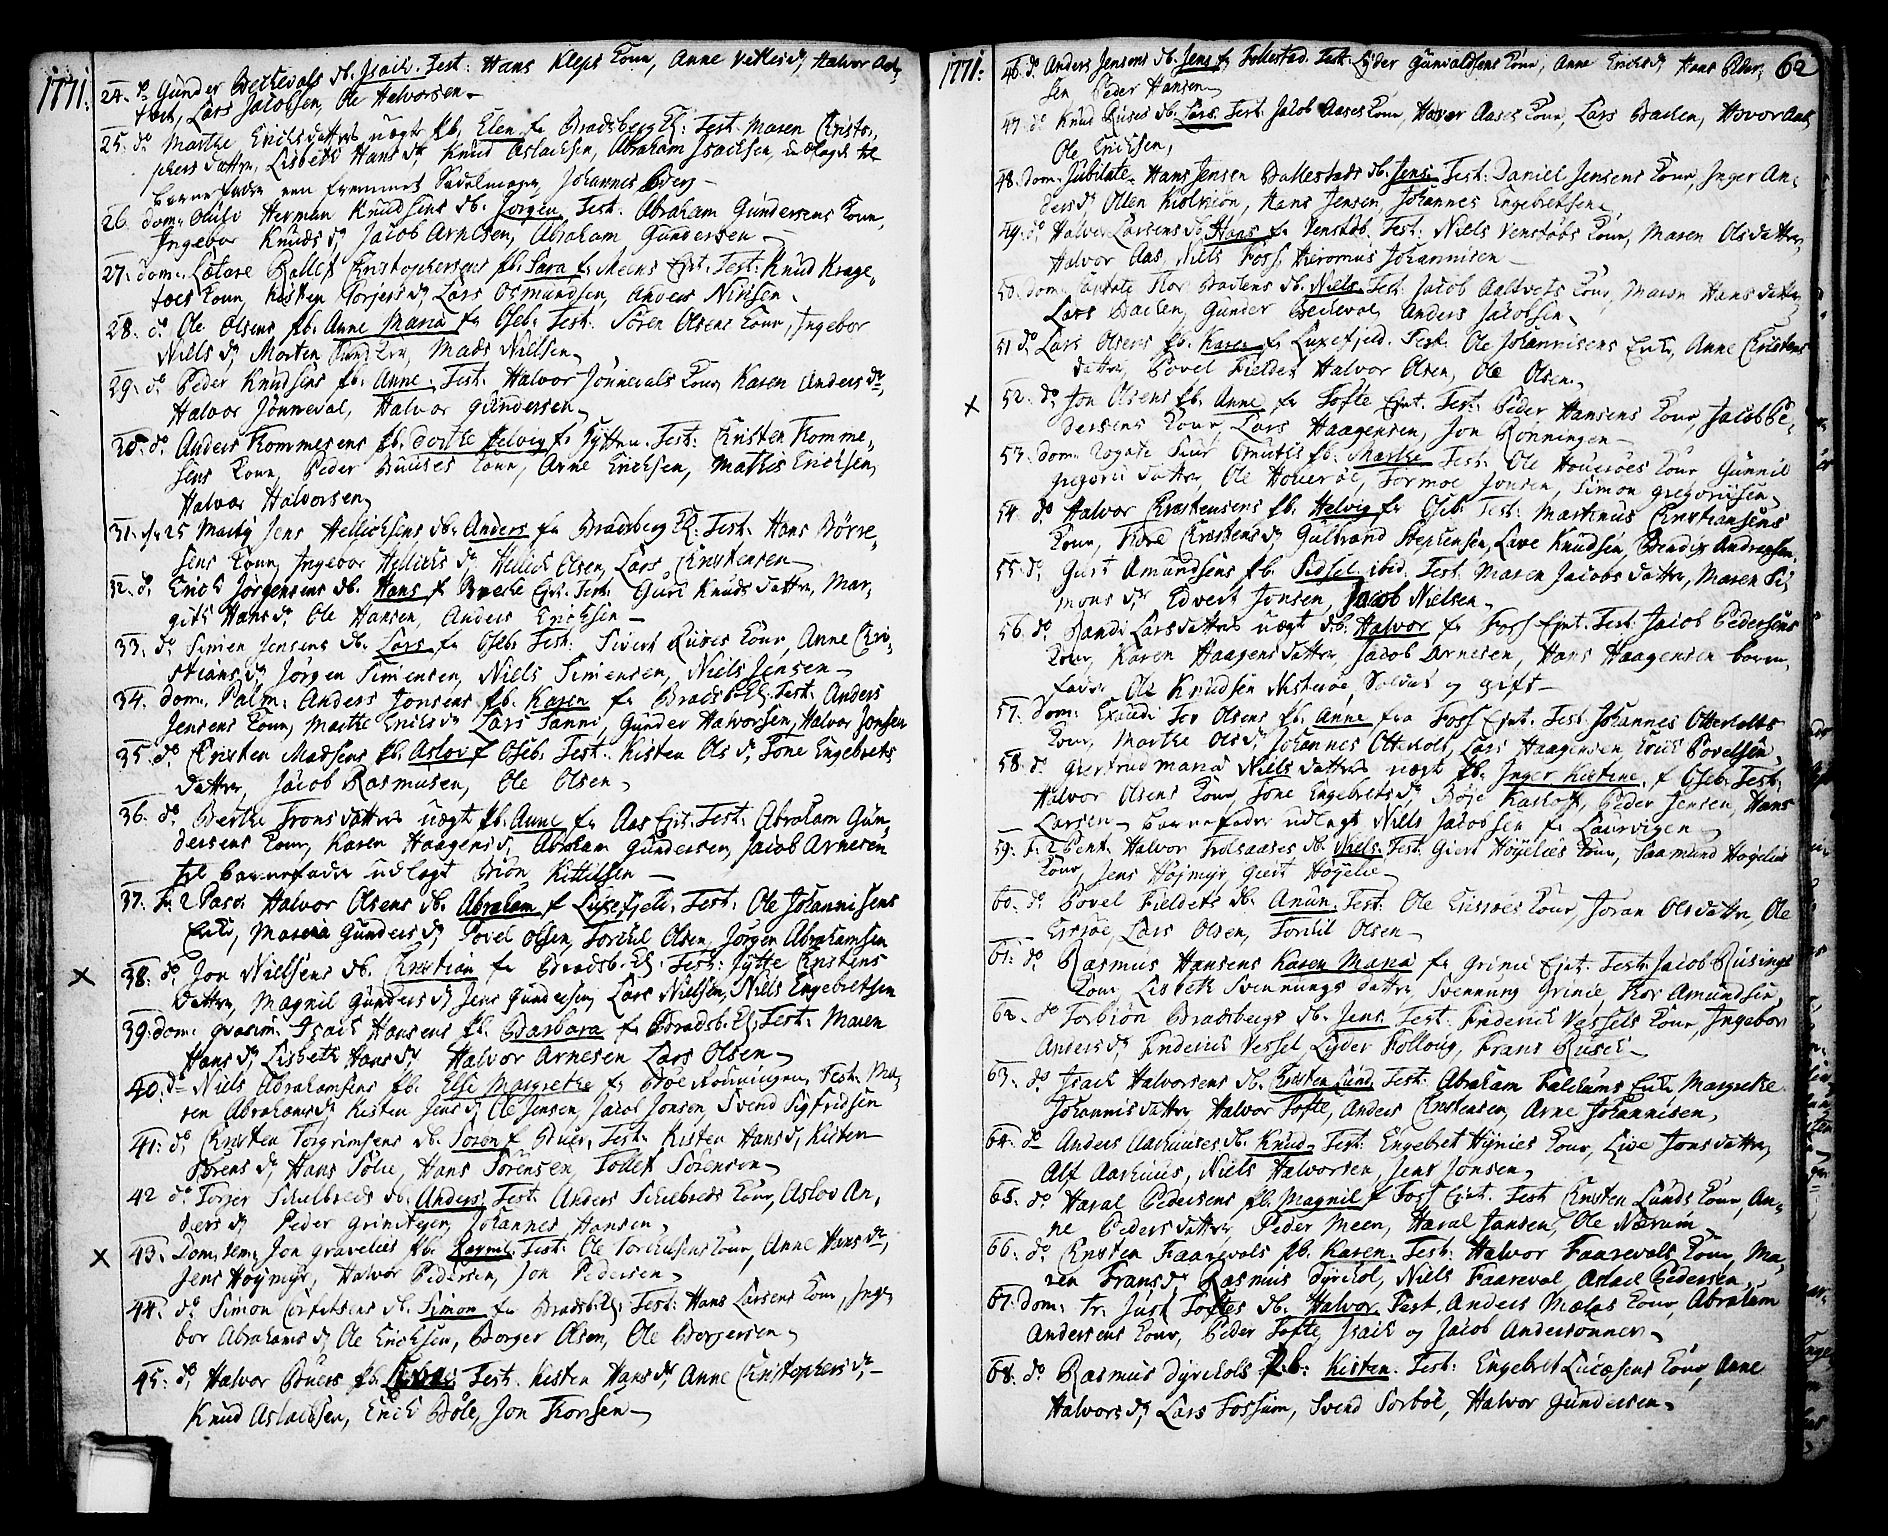 1771.
24. do Gunder Bechevals db. Isach. Test: Hans Kleps Kone, Anne Vetlesd, Halvor Aas,
Lars Jacobsen, Ole Halvorsen
25. do Marthe Erichsdatters uægt pb. Elen fr Bradsberg Ej: Test. Maren Christo,
phers datter, Lisbeth Hansd Knud Aslachsen, Abraham Isachsen, udlagde til
barnefader een fremmet Sadelmager Johannes Berg
26. dom. Oculi Herman Knudsens db. Jørgen Test. Abraham Gundersens Kone,
Ingebor Knudsd, Jacob Arnesen, Abraham Gundersen
27. dom. Lætare Rollef Christophersens pb. Sara fr Meens Ejet. Test: Knud Krage,
toes Kone, Kisten Torjersd, Lars Osmundsen, Anders Nielsen
28. do Ole Olsens pb. Anne Maria fr Oseb. Test. Søren Olsens Kone, Ingebor
Nielsd, Morten, Mads Nielsen
29. do Peder Knudsens pb. Anne Test. Halvor Jønnevals Kone, Karen Andersd,
Halvor Jønneval, Halvor Gundersen
30. do Anders Trommesens pb. Dorthe Helvig fr Test: Christen Tromme,
sens Kone, Peder Buuses Kone, Arne Erichsen, Mathis Erichsen,
Halvor Halvorsen
31. fr 25 Martij Jens Hellichsens db. Anders fr Bradsberg Ej: Test. Hans Børre,
sens Kone, Ingebor Hellichsd, Hellich Olsen, Lars Christensen
32. do Erich Jørgensens db. Hans fr Brekke Ejet. Test. Guri Knudsdatter, Mar,
githe Hansd, Ole Hansen, Anders Erichsen
33. do Simen Jensens db. Lars fr Oseb. Test. Sivert Ruses Kone, Anne Chri,
stiansd, Jørgen Simensen, Niels Simensen, Niels Jensen
34. dom. Palm: Anders Jonsens pb. Karen fr Bradsb. Ej. Test: Anders
Jensens Kone, Marthe Erichsd Lars Tanni, Gunder Halvorsen, Halvor Jonssen
35. do Christen Madsens pb. Aslov fr Oseb. Test. Kisten Olsd, Tone Engebrets
datter, Jacob Rasmusen, Ole Olsen
36. do Berthe Tronsdatters uægt pb. Anne fr Aas Ejet. Test: Abraham Gun,
dersens Kone, Karen Haagensd, Abraham Gundersen, Jacob Arnesen
til barnefader udlagt Biøn Kittilsen
37. Fr 2 Pasch Halvor Olsens db. Abraham fr Luxefjeld. Test. Ole Johannisens
Enke, Maria Gundersd, Povel Olsen, Torchil Olsen, Jørgen Abrahamsen
38. do Jon Nielsens db. Christian fr Bradsb. Ej. Test: Jytte Christens
datter, Magnil Gundersd, Jens Gundersen, Lars Nielsen, Niels Engebretsen
39. dom. qvasim. Isach Hansens pb. Barbara fr Bradsb. Ej, Test: Maren
Hansd, Lisbeth Hansd, Halvor Arnesen, Lars Olsen
40. do Niels Abrahamsens pb. Else Margrethe fr Bøe Rønningen. Test. Ma,
ren Abrahamsd, Kisten Jensd, Ole Jensen, Jacob Jonsen, Svend Sigfridsen
41. do Christen Torgrimsens db. Søren fr Bruer. Test. Kisten Hansd, Kisten
Sørensd, Hans Solie, Hans Sørensen, Tollef Sørensen
42 do Torger Schilbreds db. Anders. Test. Anders Schilbreds Kone, Aslov An,
dersd, Peder Grinstegen, Johannes Hansen
43. Dom. sem. Jon Gravelies pb. Ragnil. Test. Ole Torchilsens Kone, Anne Hansd,
Jens Høymyr, Halvor Pedersen, Jon Pedersen
44. do Simon db. Simon fr Bradsb. Ej: Test: Hans Larsens Kone, Inge,
bor Abrahamsd, Ole Erichsen, Borger Olsen, Ole Borgersen
45. do Halvor Bruers pb. Test. Kisten Hansd, Anne Christophersd,
Knud Aslachsen, Erich Bøle, Jon Thorsen
1771.
62
46. do Anders Jensens db. Jens fr Follestad. Test: Lyder Gunvaldsens Kone, Anne Erichsd, Hans Peder,
sen Peder Hansen
47. do Knud Ruses db. Lars. Test. Jacob Aases Kone, Halvor Aases Kone, Lars Bachen, Hovor Aas,
Ole Erichsen,
48. dom. Jubilate Hans Jensen Ballestads db. Jens. Test: Daniel Jensens Kone, Inger An,
dersd, Hans Jensen, Johannes Engebretsen
49. do Halvor Larsens db. Hans fr Venstøb. Test: Niels Venstøbs Kone, Maren Olsdatter,
Halvor Aas, Niels Foss, Hieronimus Johannisen
50. dom. Cantate Thor Bachens db. Niels. Test: Jacob Kone, Maren Hansdatter
Lars Bachen, Gunder Becheval, Anders Jacobsen
51 do Lars Olsens pb. Karen fr Luxefjeld. Test. Ole Johannisens Enke, Anne Christens
datter, Povel Fieldet, Halvor Olsen, Ole Olsen
52. do Jon Olsens pb. Anne fr Tofte Ejet. Test: Peder Hansens Kone, Jacob Pe,
dersens Kone, Lars Haagensen, Jon Rønningen
53. dom. Rogate Siur Omutis pb. Marthe Test. Ole Houerøes Kone, Gunnil
Gregorii datter, Ole Houerøe, Tormoe Jonsen, Simon Gregoriusen
54. do Halvor Christensens pb. Helvig fr Oseb. Test: Martinus Christiansens
Kone, Thore Christensd, Gulbrand Stephensen, Live Knudsen, Bendix Andreasen
55. do Guet Amundsens pb. Sidsel ibid. Test: Maren Jacobsdatter, Maren Si,
monsd, Edvert Jonsen, Jacob Nielsen
56. do Randi Larsdatters uægt db. Halvor fr Foss Ejet. Test: Jacob Pedersens
Kone, Karen Haagensdatter, Jacob Arnesen, Hans Haagensen barne,
fader Ole Knudsen Nisterøe, Soldat og gift
57. Dom: Exaudi Tor Olsens pb. Anne fra Foss Ejet. Test. Johannes Otterholts
Kone, Marthe Olsd, Johannes Otterholt, Lars Haagensen Erich Povelsen,
58. do Giertrud Maria Nielsdatters uægt pb. Inger Kistine fr Oseb. Test:
Halvor Olsens Kone, Tone Engebretsd, Bøje Kashoff, Peder Jensen, Hans
Larsen, barnefader udlagt Niels Jacobsen fr Laurvigen
59. F. 2 Pent. Halvor Trolsaases db. Niels. Test. Giert Høyelies Kone, Saamund Høyelies
Kone, Jens Høymyr, Giert Høyelie
60. do Povel Fieldets db. Anun. Test: Ole Ersøes Kone, Joran Olsdatter, Ole
Ersøe, Lars Olsen, Torchil Olsen
61. do Rasmus Hansens Karen Maria fr Grinie Ejet. Test. Jacob Rusings
Kone, Lisbeth Svennungsdatter, Svennung Grinie, Thor Amundsen,
62. do Torbiøn Bradsbergs db. Jens. Test: Friderich Vessels Kone, Ingebor
Andersd, Friderich Vessel, Lyder Follaug, Frans Buser
63. do Isach Halvorsens db. Christen Lund Test: Abraham Falchums Enke, Margrethe
Johannisdatter Halvor Tofte, Anders Christensen, Arne Johannisen,
64. do Anders Aarhuuses db. Knud. Test: Engebret Hynies Kone, Live Jonsdatter,
Alf Aarhuus, Niels Halvorsen, Jens Jonsen
65. do Haral Pedersens pb. Magnil fr Foss Ejet. Test Christen Lunds Kone, An,
ne Pedersdatter, Peder Meen, Haral Jansen, Ole Nærum
66. do Christen Faarevals pb. Karen. Test: Halvor Faarevals Kone, Ma,
ren Fransd, Rasmus Dyrchol, Niels Faareval, Aslach Pedersen,
67. dom. Tr. Just Toftes db. Halvor Test. Anders Mælas Kone, Abraham
Andersens Kone, Peder Tofte, Isach og Jacob Andersønner
68. do Rasmus Dyrchols pb: Kisten. Test: Engebret Lucasens Kone, Anne
Halvorsd, Lars Fossum, Svend Sorbøl, Halvor Gundersen